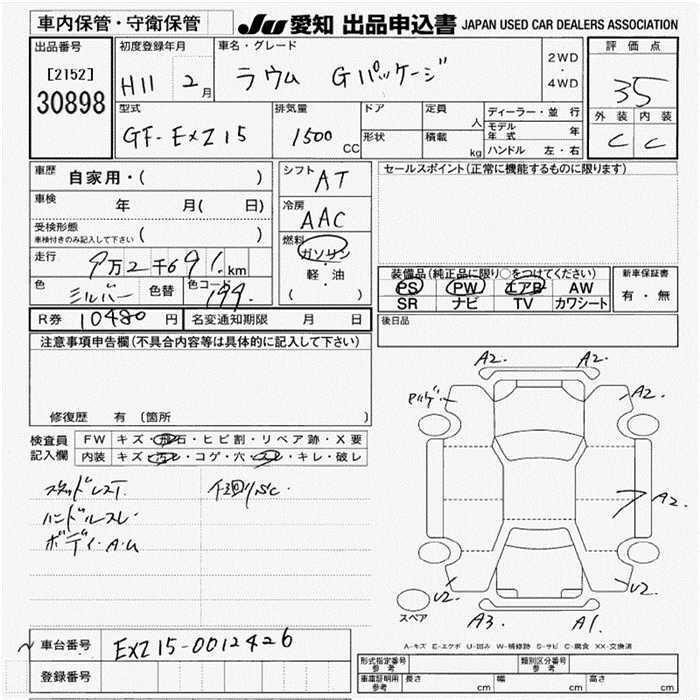 車内保管・守衛保管
JU 愛知 出品申込書 JAPAN USED CAR DEALERS ASSOCIATION
出品番号
[2152]
30898
初度登録年月
H11 2月
車名・グレード
ラウム Gパッケージ
2WD
・
4WD
評価点
35
外装 内装
C C
型式
GF-EXZ15
排気量
1500 CC
ドア
形状
定員 人
積載 kg
ディーラー・並行
モデル年式 年
ハンドル 左・右
車歴
自家用・( )
車検
年 月( 日)
受検形態
車検付きのみ記入して下さい ( )
走行
9万2千691. km
色
シルバー
色替
色コード
199.
シフト
AT
冷房
AAC
燃料
ガソリン
・
軽・油
( )
セールスポイント(正常に機能するものに限ります)
装備品(純正品に限り○をつけてください)
PS PW エアB AW
SR ナビ TV カワシート
新車保証書
有・無
R券 10480 円
名変通知期限 月 日
後日品
注意事項申告欄(不具合内容等は具体的に記入して下さい)
修復歴 有 〔箇所 〕
検査員
記入欄
FW キズ・飛石・ヒビ割・リペア跡・X要
内装 キズ・汚レ・コゲ・穴・スレ・キレ・破レ
スタッドレスT.
ハンドルスレ
ボディ・A.U
下廻りSC.
A2. A2.
A2.
A2.
U2. U2.
A3. A1.
スペア
A-キズ E-エクボ U-凹み W-補修跡 S-サビ C-腐食 XX-交換済
車台番号
EXZ15-0012426
登録番号
形式指定番号
参考
類別区分番号
参考
車庫証明用
参考
長さ cm 幅 cm 高さ cm